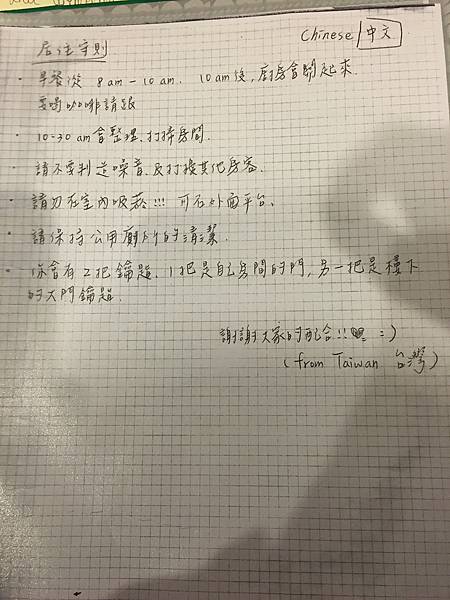 Chinese/中文
居住守則
· 早餐從 8am - 10am. 10am後,廚房會關起來.
要喝咖啡請趁
· 10-30 am 會整理、打掃房間.
· 請不要製造噪音及打擾其他房客.
· 請勿在室內吸菸!!! 可在外面平台。
· 請保持公用廁所的清潔.
· 你會有2把鑰匙. 1把是自己房間的門,另一把是樓下
的大門鑰匙.
謝謝大家的配合!! :)
(from Taiwan 台灣)